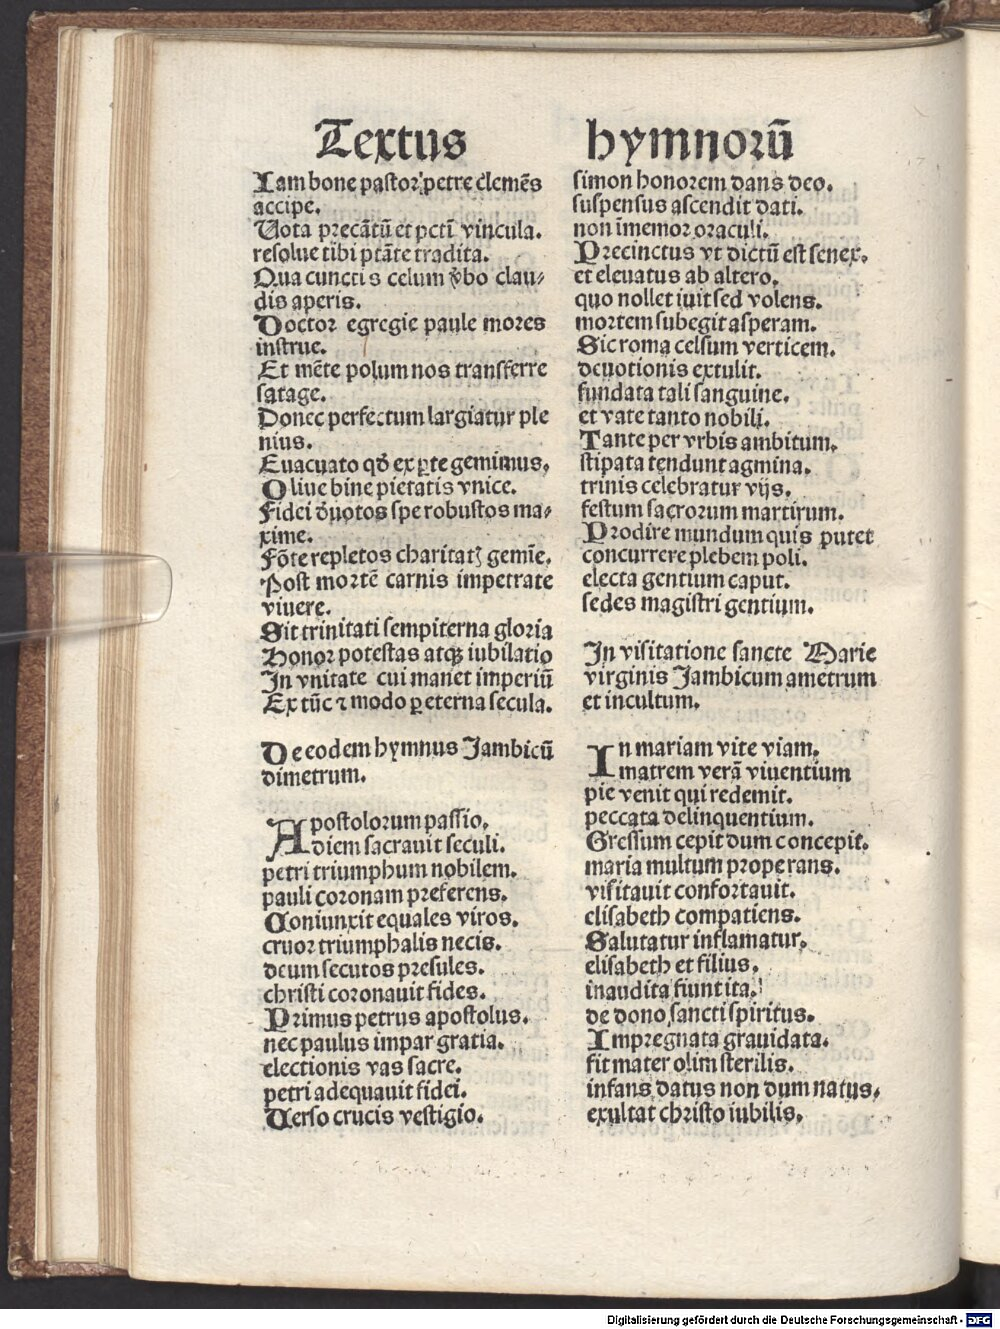 Textus hymnorū
Iam bone pastor petre clemēs
accipe.
Uota precātū et pctī vincula.
resolue tibi ptāte tradita.
Qua cunctis celum v̄bo clau⸗
dis aperis.
Doctor egregie paule mores
instrue.
Et mēte polum nos transferre
satage.
Donec perfectum largiatur ple
nius.
Euacuato qd̄ ex ꝑte gemimus.
Oliue bine pietatis vnice.
Fidei d̄uotos spe robustos ma⸗
xime.
Fōte repletos charitatꝫ gemīe.
Post mortē carnis impetrate
viuere.
Sit trinitati sempiterna gloria
Honor potestas atqꝫ iubilatio
In vnitate cui manet imperiū
Ex tūc ⁊ modo ꝑ eterna secula.
De eodem hymnus Jambicū
dimetrum.
Apostolorum passio.
diem sacrauit seculi.
petri triumphum nobilem.
pauli coronam preferens.
Coniunxit equales viros.
cruor triumphalis necis.
deum secutos presules.
christi coronauit fides.
Primus petrus apostolus.
nec paulus impar gratia.
electionis vas sacre.
petri adequauit fidei.
Uerso crucis vestigio.
simon honorem dans deo.
suspensus ascendit dati.
non īmemor oraculi.
Precinctus vt dictū est senex.
et eleuatus ab altero.
quo nollet iuit sed volens.
mortem subegit asperam.
Sic roma celsum verticem.
deuotionis extulit.
fundata tali sanguine.
et vate tanto nobili.
Tante per vrbis ambitum.
stipata tendunt agmina.
trinis celebratur vijs.
festum sacrorum martirum.
Prodire mundum quis putet
concurrere plebem poli.
electa gentium caput.
sedes magistri gentium.
In visitatione sancte Marie
virginis Jambicum ametrum
et incultum.
In mariam vite viam.
matrem verā viuentium
pie venit qui redemit.
peccata delinquentium.
Gressum cepit dum concepit.
maria multum properans.
visitauit confortauit.
elisabeth compatiens.
Salutatur inflamatur.
elisabeth et filius.
inaudita fiunt ita.
de dono sancti spiritus.
Impregnata grauidata.
fit mater olim sterilis.
infans datus non dum natus.
exultat christo iubilis.
Digitalisierung gefördert durch die Deutsche Forschungsgemeinschaft - DFG